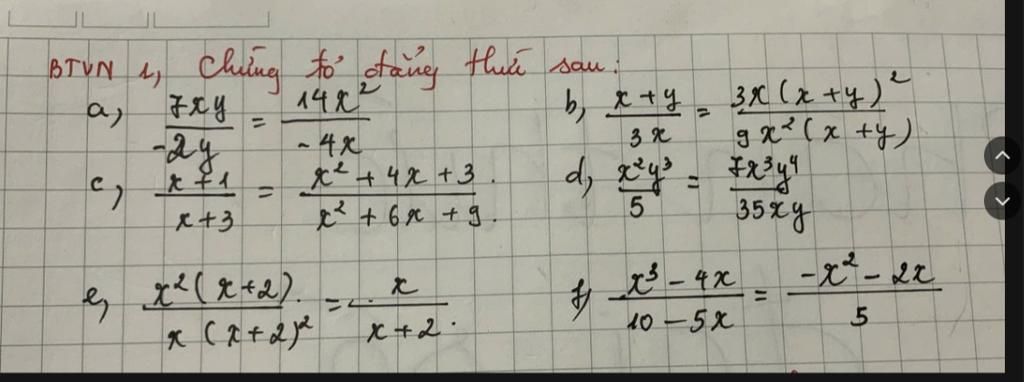 BTVN 1, Chứng tỏ đẳng thức sau:
a, 7xy/-2y = 14x²/-4x b, x+y/3x = 3x(x+y)²/9x²(x+y)
c, x+1/x+3 = x²+4x+3/x²+6x+9. d, x²y³/5 = 7x³y⁴/35xy
e, x²(x+2)./x(x+2)² = x/x+2. f, x³-4x/10-5x = -x²-2x/5